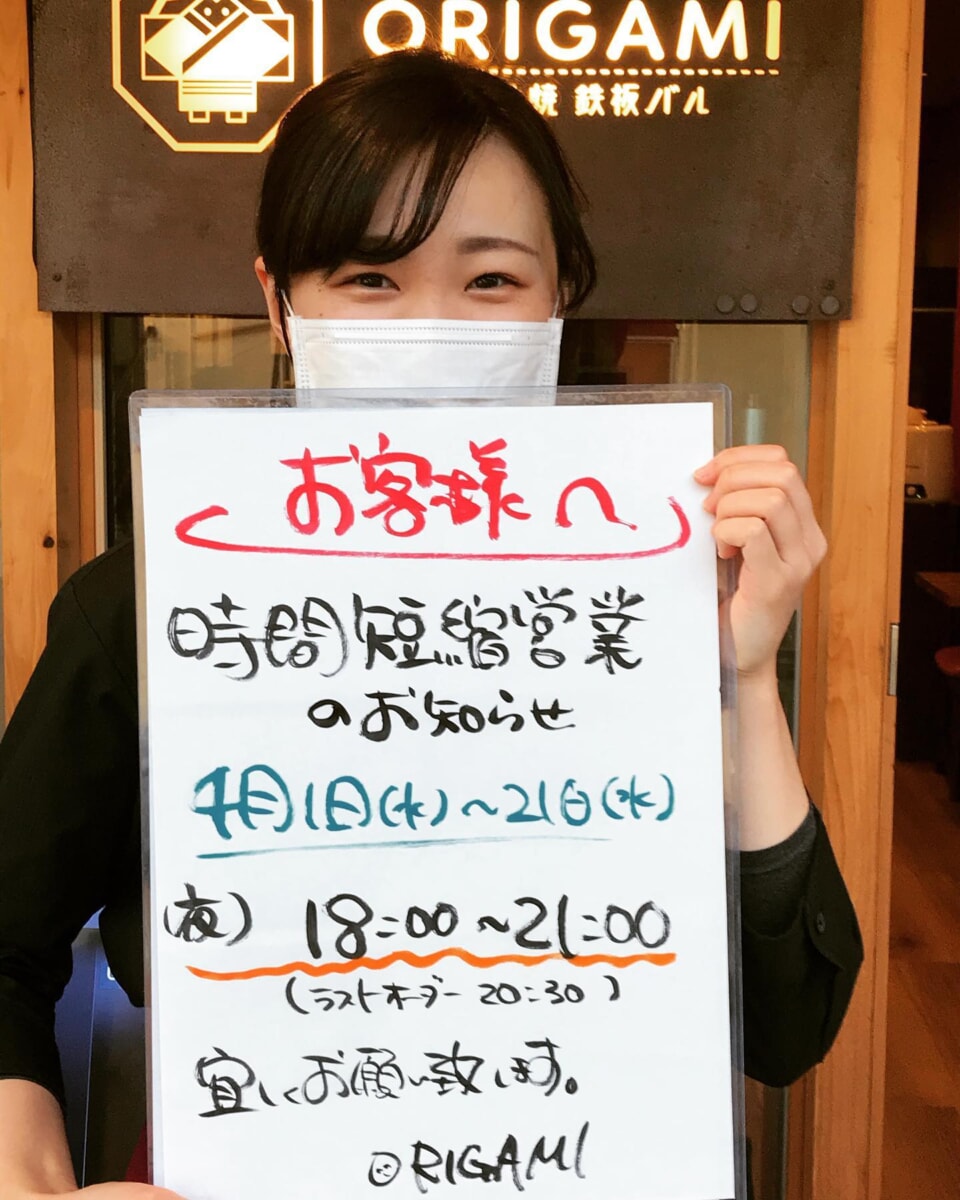 ORIGAMI
焼 鉄板バル
お客様へ
時間短縮営業
のお知らせ
4月1日(水)~21日(水)
(夜) 18:00~21:00
(ラストオーダー 20:30)
宜しくお願い致します。
ORIGAMI